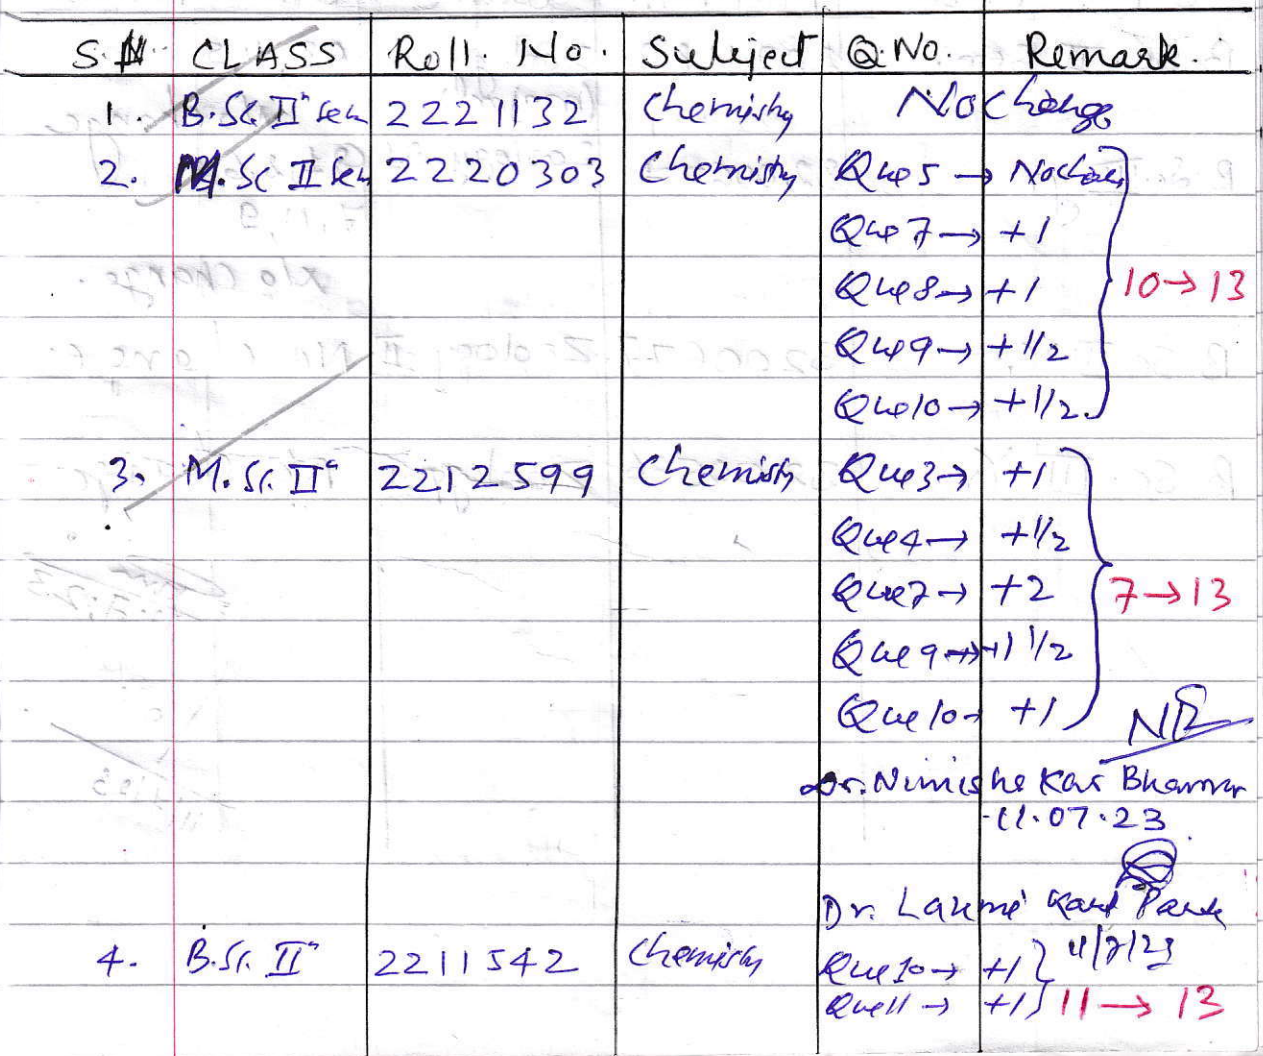 S.N CLASS Roll. No. Subject Q.No. Remark.
1. B.Sc. II" Sem 2221132 Chemistry No Change
2. M.Sc II Sem 2220303 Chemistry Que 5 → No change
Que 7 → +1
Que 8 → +1 10 → 13
Que 9 → +1/2
Que 10 → +1/2
3. M.Sc. II" 2212599 Chemistry Que 3 → +1
Que 4 → +1/2
Que 7 → +2 7 → 13
Que 9 → +1 1/2
Que 10 → +1
Dr.
11.07.23
Dr. Laxmi Kant
4. B.Sc. II" 2211542 Chemistry Que 10 → +1 11/7/23
Que 11 → +1 11 → 13